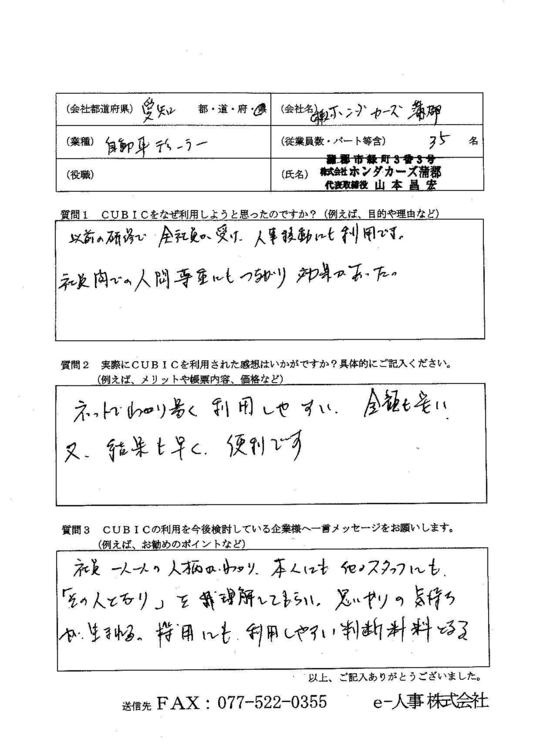 (会社都道府県) 愛知 都・道・府・県
(会社名) ㈱ホンダカーズ蒲郡
(業種) 自動車ディーラー
(従業員数・パート等含) 35 名
(役職)
(氏名) 蒲郡市緑町3番3号
株式会社ホンダカーズ蒲郡
代表取締役 山本昌宏
質問1 CUBICをなぜ利用しようと思ったのですか?(例えば、目的や理由など)
以前の研修で 全社員が受け、人事移動にも利用です。
社員内での人間尊重にもつながり 効果があった。
質問2 実際にCUBICを利用された感想はいかがですか?具体的にご記入ください。
(例えば、メリットや帳票内容、価格など)
ネットでわかり易く利用しやすい、金額も安い
又、結果も早く、便利です
質問3 CUBICの利用を今後検討している企業様へ一言メッセージをお願いします。
(例えば、お勧めのポイントなど)
社員一人一人の人柄がわかり、本人にも他のスタッフにも、
「その人となり」を 理解してもらい、思いやりの気持ち
が生まれる。採用にも利用しやすい判断材料となる
以上、ご記入ありがとうございました。
送信先 FAX:077-522-0355 e-人事株式会社